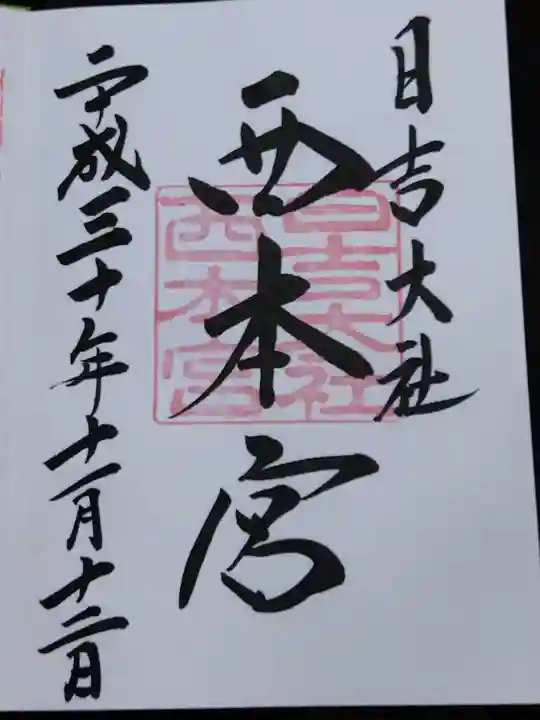 日吉大社
西本宮
日吉大社
西本宮
平成三十年十一月十二日